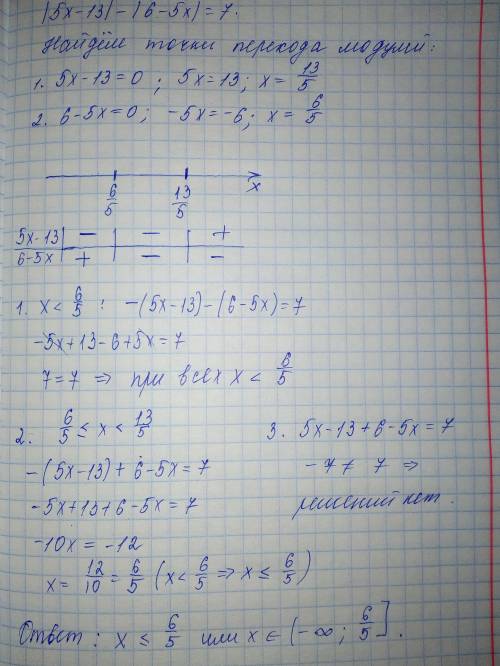 |5x-13| - |6-5x| = 7.
Найдём точки перехода модулей:
1. 5x-13=0; 5x=13; x= 13/5
2. 6-5x=0; -5x=-6; x= 6/5
6/5 13/5 x
5x-13 | - | - | +
6-5x | + | - | -
1. x< 6/5 : -(5x-13)-(6-5x)=7
-5x+13-6+5x=7
7=7 ⇒ при всех x < 6/5
2. 6/5 ≤ x < 13/5
-(5x-13)+6-5x=7
-5x+13+6-5x=7
-10x=-12
x= 12/10 = 6/5 (x< 6/5 ⇒ x ≤ 6/5)
3. 5x-13+6-5x=7
-7≠7 ⇒
решений нет.
Ответ: x ≤ 6/5 или x∈(-∞; 6/5].